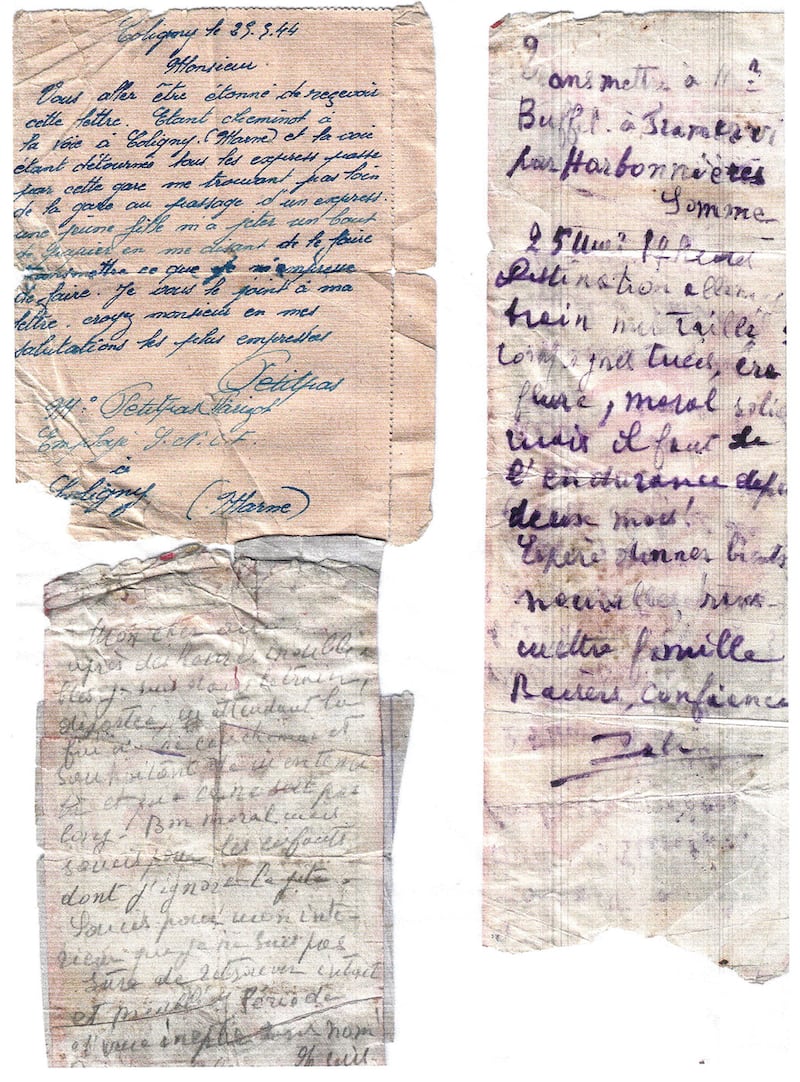 Coligny le 29.5.44
Monsieur.
Vous aller être étonné de reçevoir
cette lettre. Etant cheminot à
la voie à Coligny. (Marne) et la voie
étant détourné tous les express passe
par cette gare me trouvant pas loin
de la gare au passage d'un express.
une jeune fille m'a jeter un bout
de papier en me disant de le faire
transmettre ce que je m'empresse
de faire. Je vous le joint à ma
lettre. croyez monsieur en mes
salutations les plus empressées
Petitpas
Mr Petitpas
Employé S.N.C.F.
à
Coligny (Marne)
Mon cher
après des heures inoubli
bles je suis dans le train,
déportée, attendant la
fin de ce cauchemar et
souhaitant
et que ce ne soit pas
long. Bon moral, mais
soucis pour les enfants
dont j'ignore le
Soucis pour mon inté-
rieur que je ne suis pas
sûre de retrouver intact
et Période
d'une sans nom
Transmettre à Mr
Buffet. à Framervi
par Harbonnières
Somme
25
Destination allem
train mitraillé
compagnes tuées,
moral soli
mais il faut de
l'endurance depu
deux mois!
Espère donner bient
nouvelles, trans-
mettre famille
Baisers, Confiance